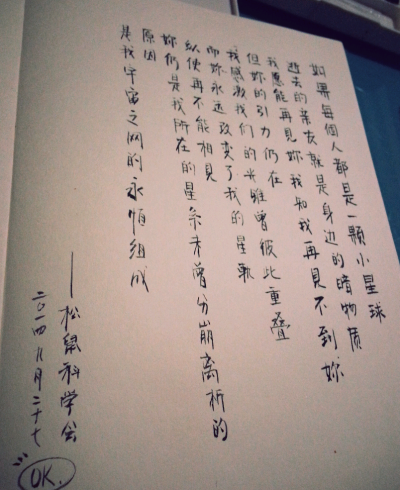 如果每個人都是一顆小星球
逝去的亲友就是身边的暗物质
我愿能再見妳 我知我再見不到妳
但妳的引力仍在
我感激我们的光锥曾彼此重叠
而妳永远改变了我的星軌
纵使再不能相見
妳仍是我所在的星系未曾分崩离析的
原因
是我宇宙之网的永恒组成
——松鼠科学会
二〇一四八月二十七
OK.